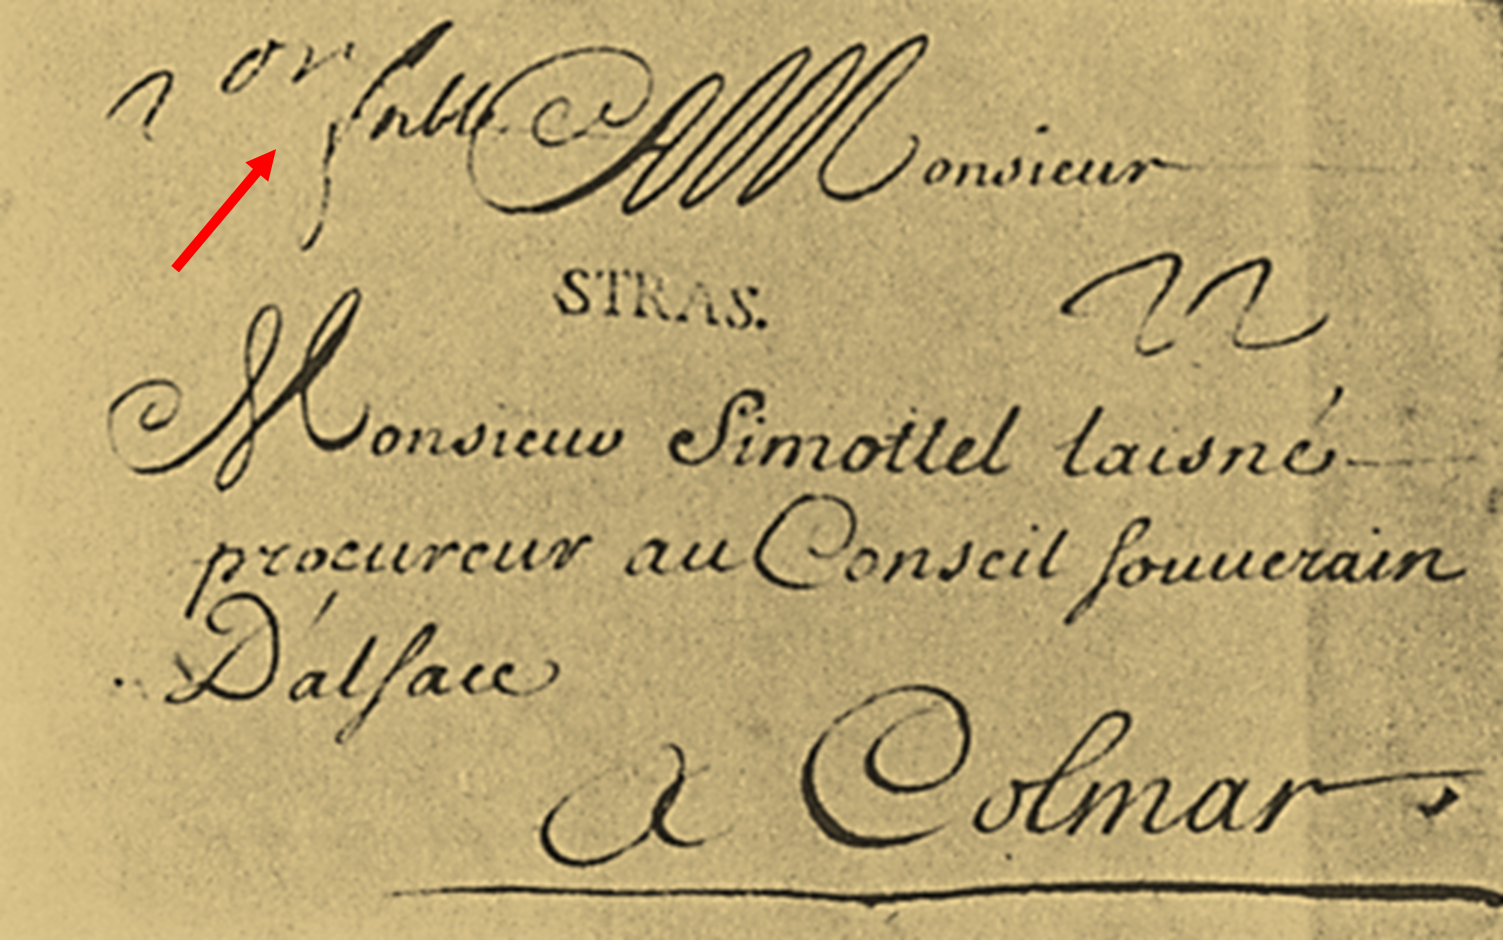 A Monsieur
STRAS.
Monsieur Simottel laisné
procureur au Conseil souuerain
D'alsace
a Colmar